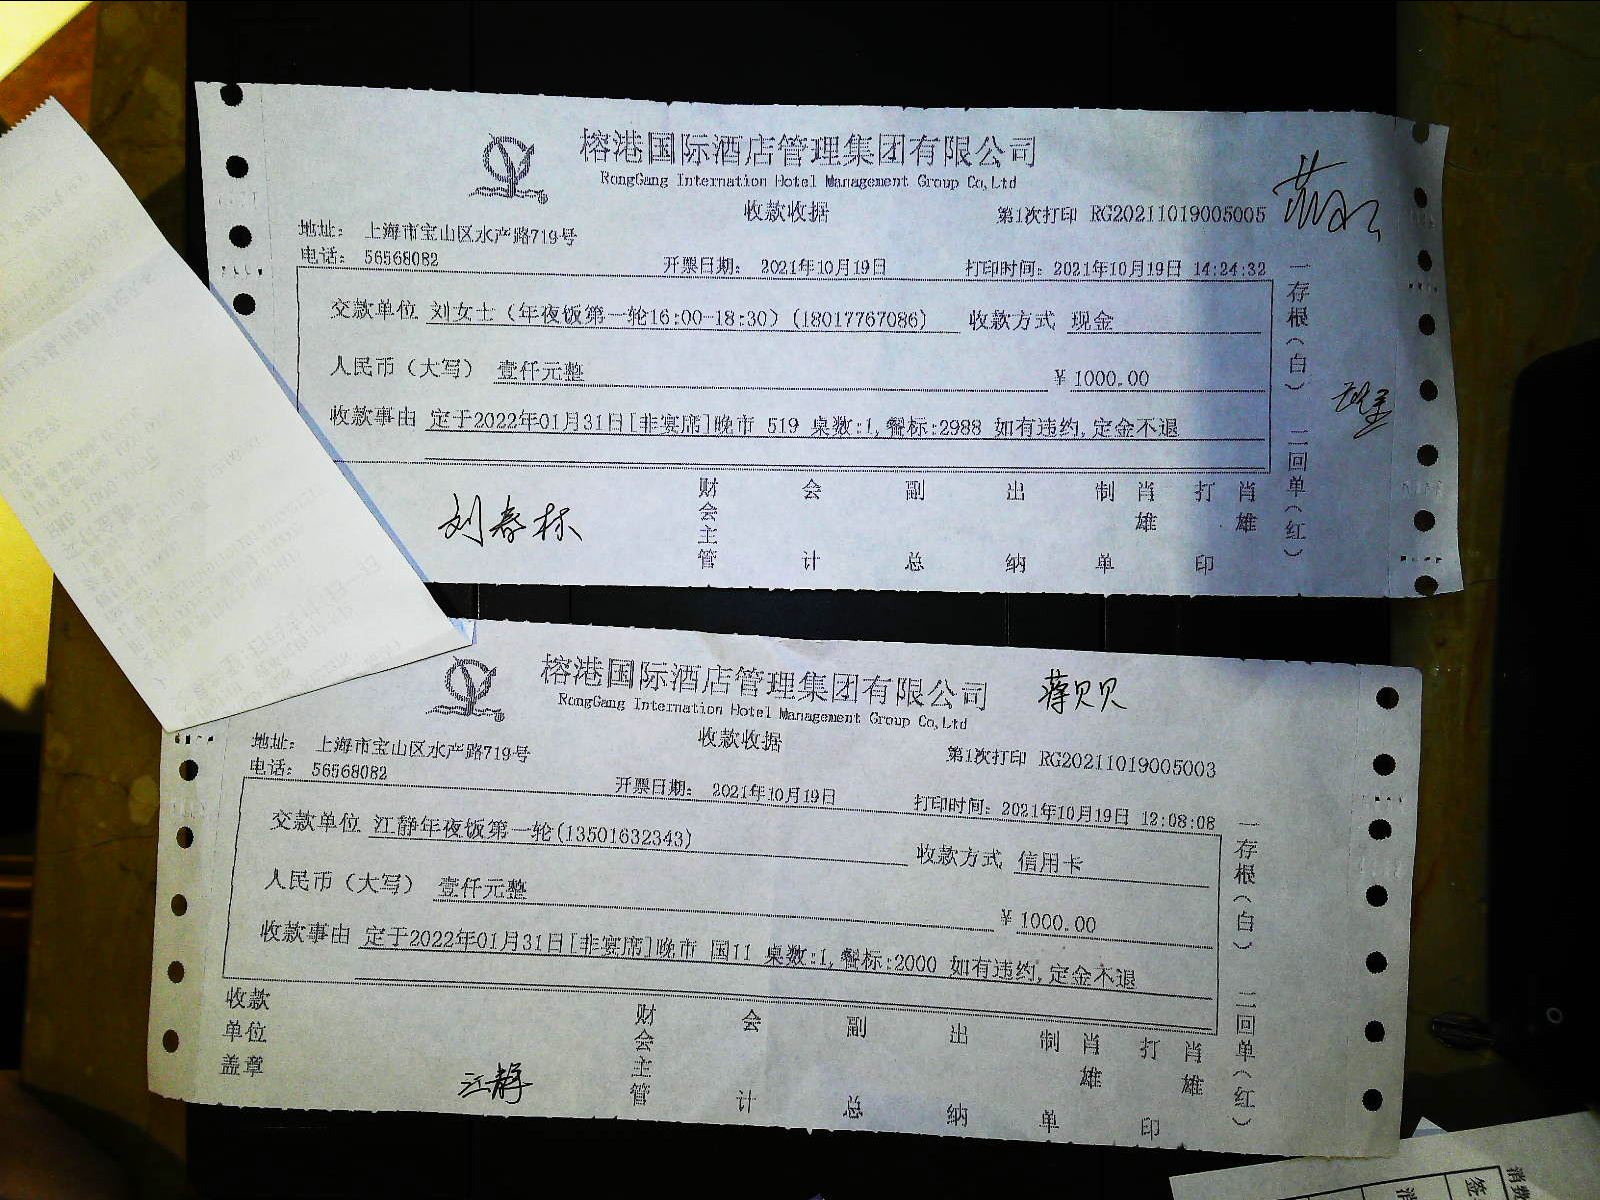 榕港国际酒店管理集团有限公司
RongGang Internation Hotel Management Group Co,Ltd
收款收据
第1次打印 RG20211019005005
地址： 上海市宝山区水产路719号
电话： 56568082
开票日期： 2021年10月19日
打印时间：2021年10月19日 14:24:32
交款单位 刘女士（年夜饭第一轮16:00-18:30）(18017767086)
收款方式 现金
人民币（大写） 壹仟元整
¥ 1000.00
收款事由 定于2022年01月31日[非宴席]晚市 519 桌数:1,餐标:2988 如有违约,定金不退
一存根（白） 二回单（红）
财会主管 会计 副总 出纳 制单 肖雄 打印 肖雄
刘春林
榕港国际酒店管理集团有限公司
RongGang Internation Hotel Management Group Co,Ltd
蒋贝贝
收款收据
第1次打印 RG20211019005003
地址： 上海市宝山区水产路719号
电话： 56568082
开票日期： 2021年10月19日
打印时间：2021年10月19日 12:08:08
交款单位 江静年夜饭第一轮(13501632343)
收款方式 信用卡
人民币（大写） 壹仟元整
¥ 1000.00
收款事由 定于2022年01月31日[非宴席]晚市 国11 桌数:1,餐标:2000 如有违约,定金不退
一存根（白） 二回单（红）
收款单位盖章
财会主管 会计 副总 出纳 制单 肖雄 打印 肖雄
江静